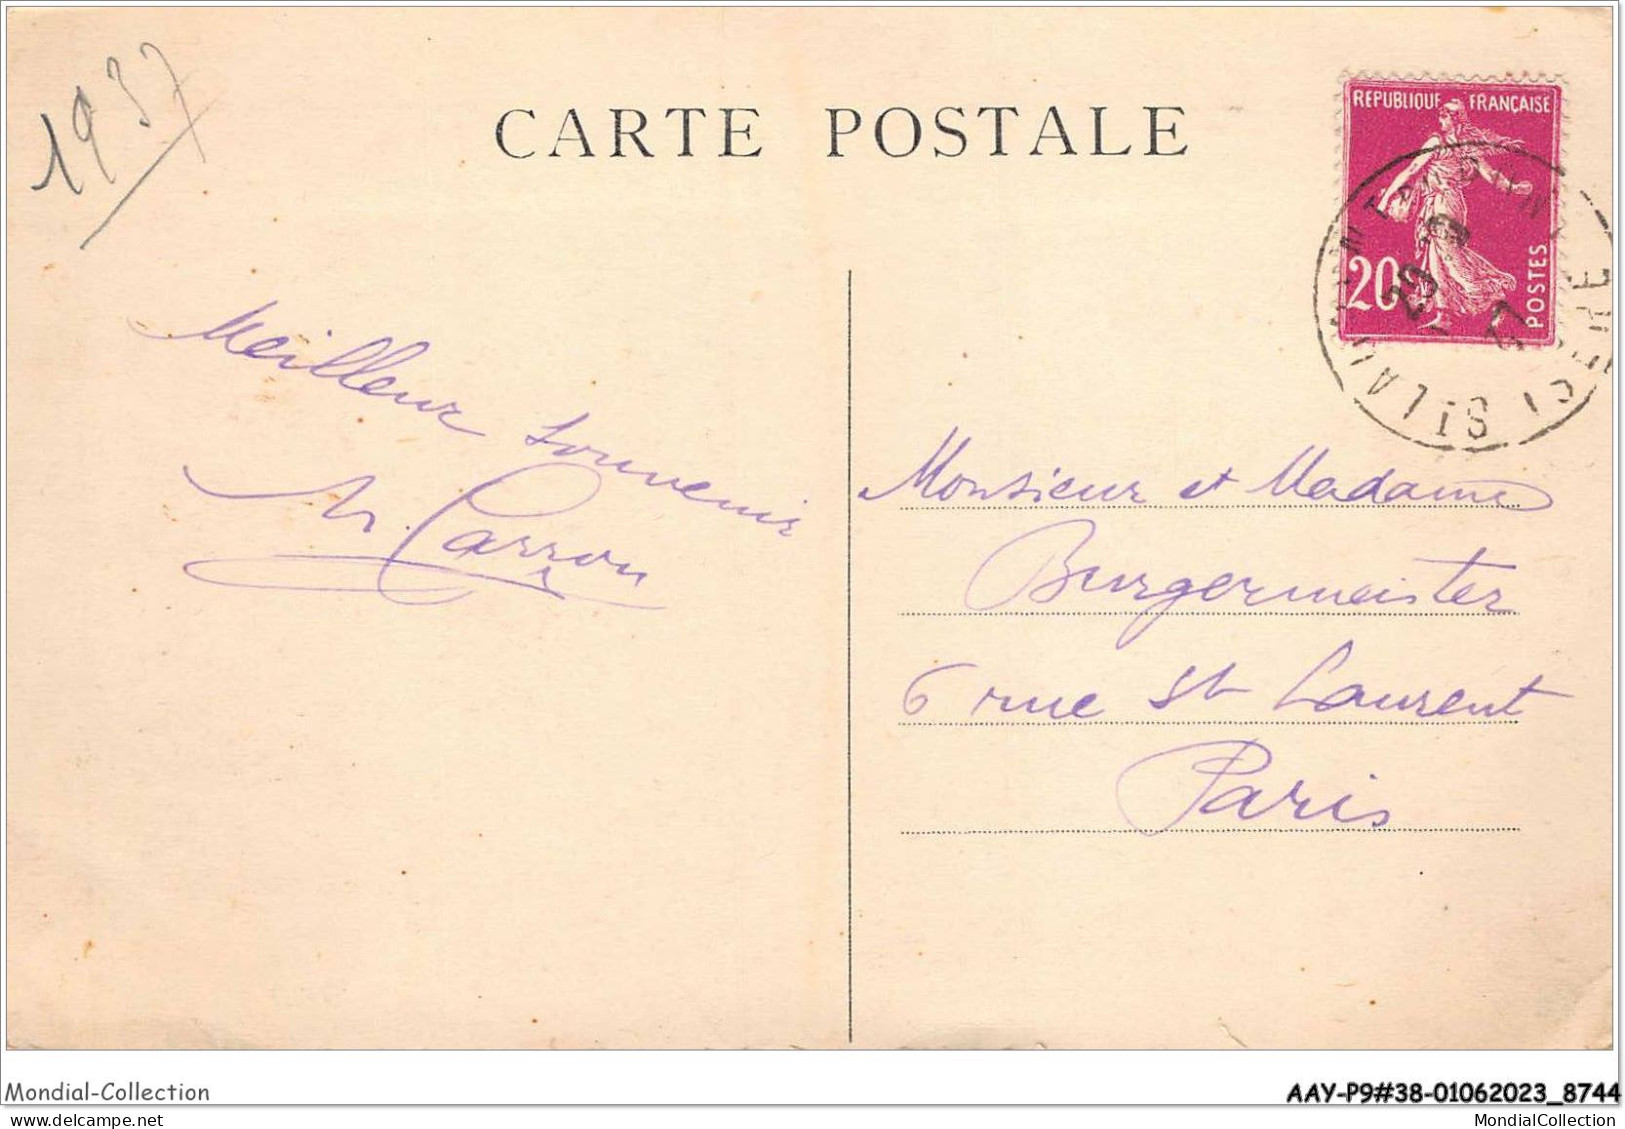 1937
CARTE POSTALE
REPUBLIQUE FRANÇAISE
20
POSTES
ISERE
Meilleur souvenir
Carron
Monsieur et Madame
Burgermeister
6 rue St Laurent
Paris
Mondial-Collection
AAY-P9#38-01062023_8744
MondialCollection